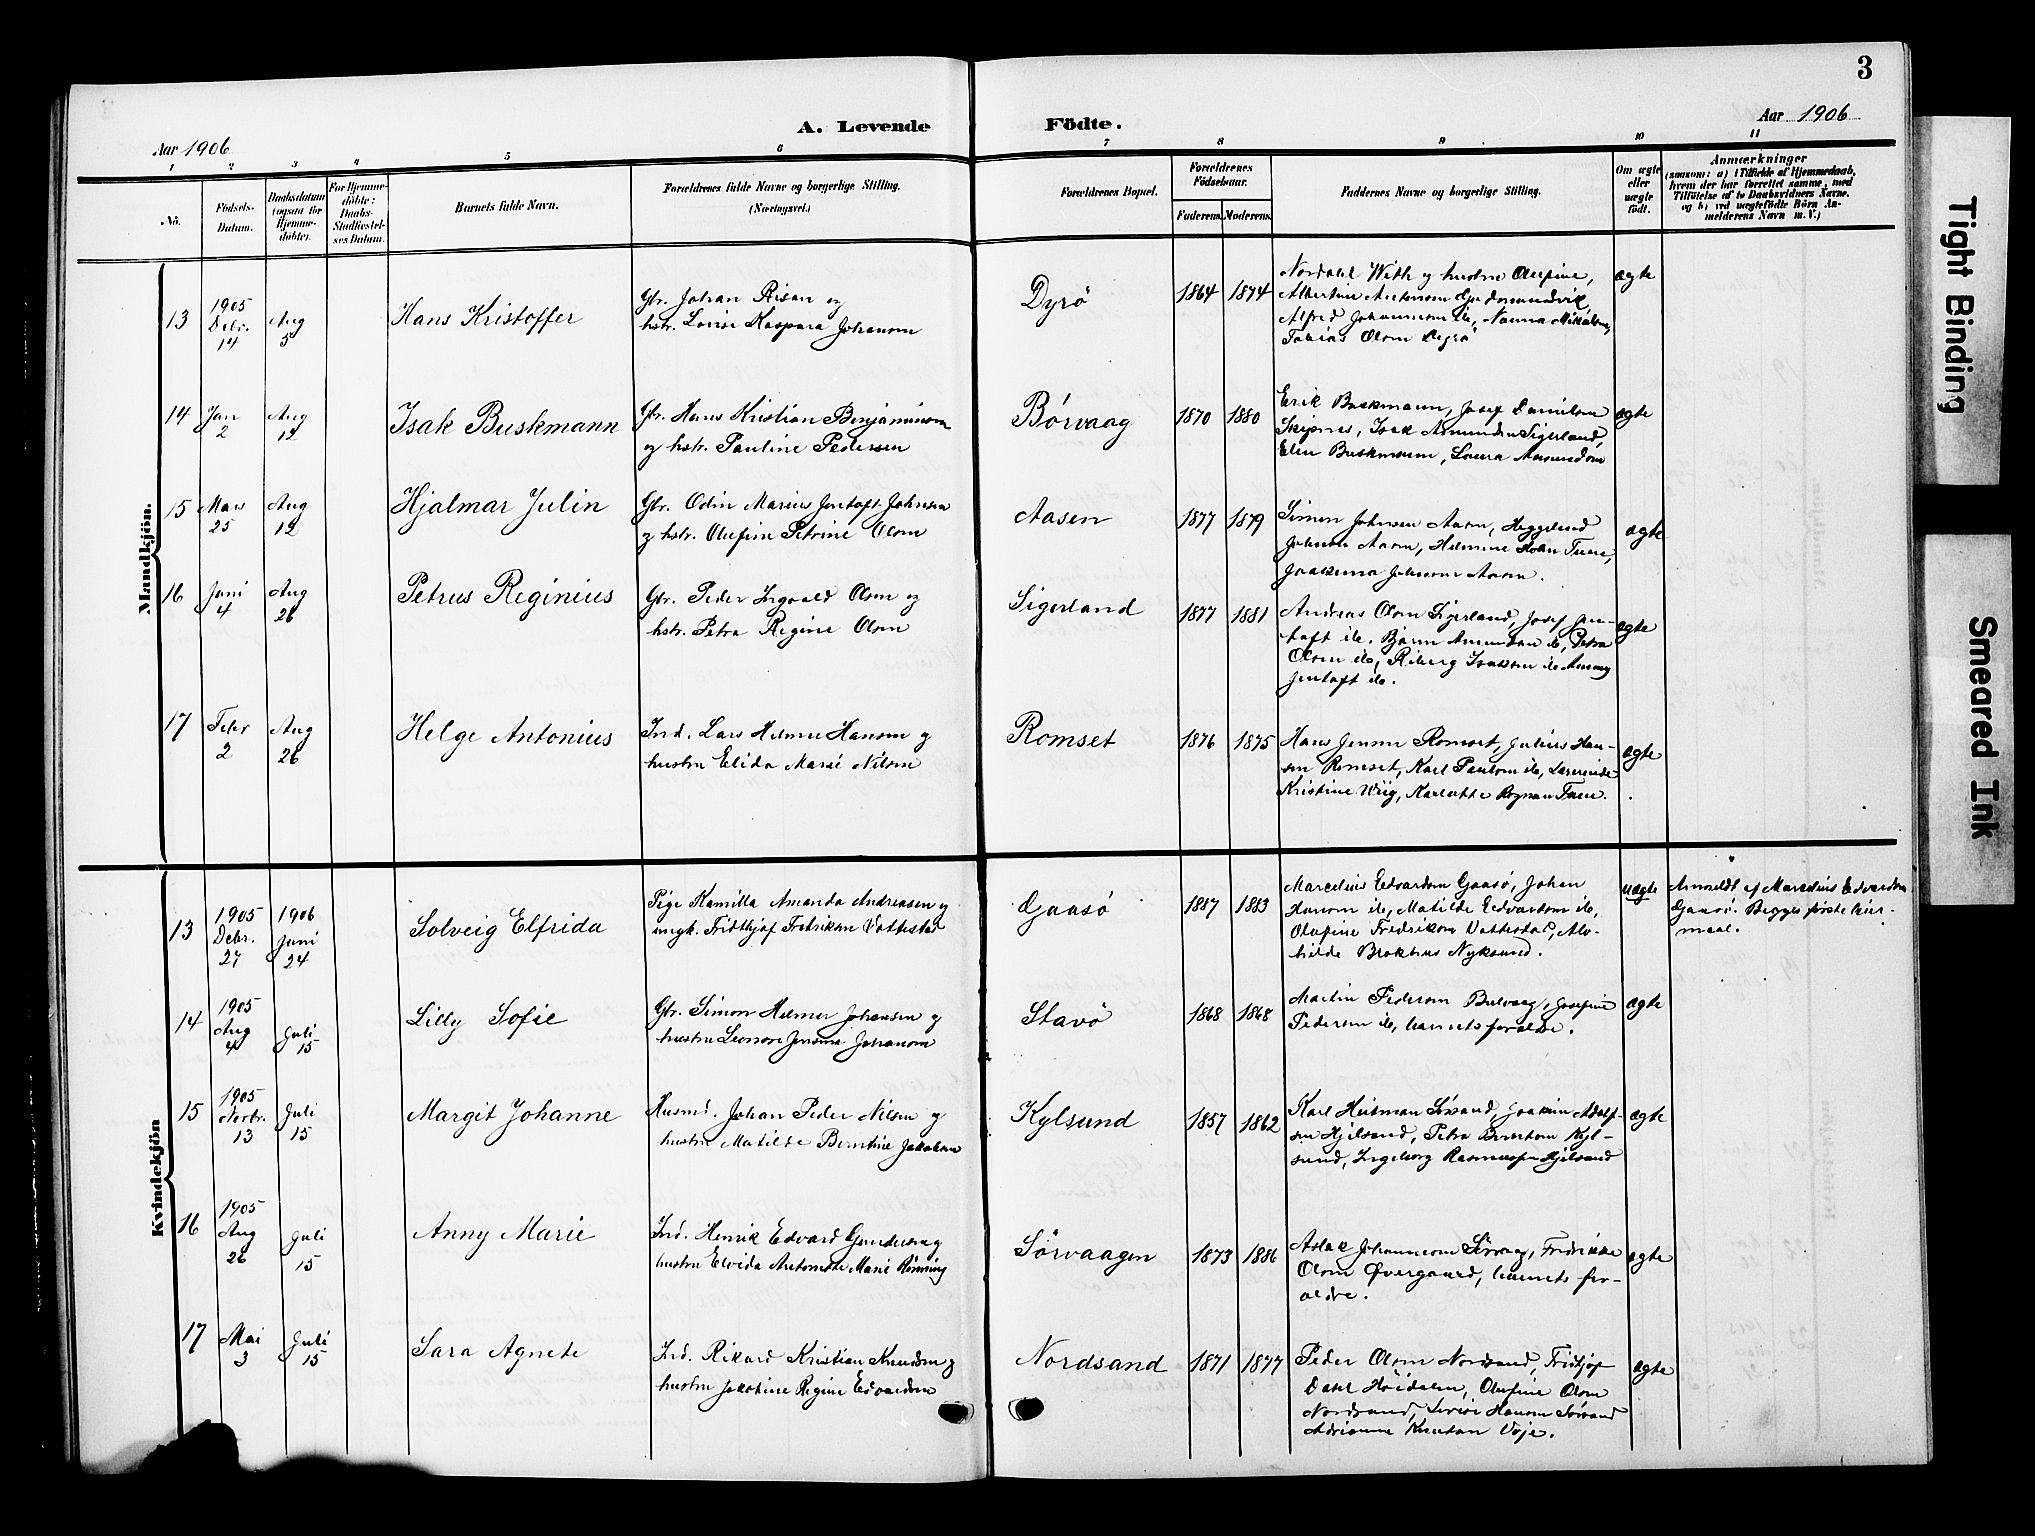 3
A. Levende
Födte.
Aar 1906
Aar 1906
1 2 3 4 5 6 7 8 9 10 11
No.
Födsels-
Datum.
Daabsdatum
(ogsaa for
Hjemme-
döbte).
For Hjemme-
döbte:
Daabs-
Stadfæstel-
ses Datum.
Barnets fulde Navn.
Forældrenes fulde Navne og borgerlige Stilling.
(Næringsvei.)
Forældrenes Bopæl.
Forældrenes
Födselsaar.
Faderens. Moderens.
Faddernes Navne og borgerlige Stilling.
Om ægte
eller
uægte
födt.
Anmærkninger
(saasom: a) i Tilfælde af Hjemmedaab,
hvem der har forrettet samme, med
Tilföielse af to Daabsvidners Navne.
og b) ved uægtefödte Börn An-
melderens Navn m. V.)
Mandkjön.
13
1905
Debr.
14
Aug
5
Hans Kristoffer
Gbr. Johan Risan og
hstr. Lovise Kaspara Johansen
Dyrö
1864 1874
Nordahl With og hustru Olufine,
Albertine Antonsen Gudmundvik,
Alfred Johannesen ib, Nanna Mikalsen,
Tobias Olsen Dyrö
ægte
14
Jan
2
Aug
12
Isak Buskmann
Gbr. Hans Kristian Benjaminsen
og hstr. Pauline Pedersen
Börvaag
1870 1880
Erik Buskmann, Josef Danielsen
Skjines, Isak Amundsen Sigerland,
Elen Buskmann, Laura Amundsen
ægte
15
Mars
25
Aug
12
Hjalmar Julin
Gbr. Odin Marius Jentoft Johnsen
og hstr. Olufine Petrine Olsen
Aasen
1877 1879
Simon Johnsen Aasen, Heggelund
Johnsen Aasen, Helmine Tunn,
Joakima Johnsen Aasen.
ægte
16
Juni
4
Aug
26
Petrus Reginius
Gbr. Peder Ingvald Olsen og
hstr. Petra Regine Olsen
Sigerland
1877 1881
Andreas Olsen Sigerland, Josef Jen-
toft ib. Bjarne Amundsen ib, Petra
Olsen ib, Riberg Isaksen ib Ammy
Jentoft ib.
ægte
17
Febr
2
Aug
26
Helge Antonius
Ind. Lars Helmer Hansen og
hustru Elida Marie Nilsen
Romset
1876 1875
Hans Jensen Romset, Julius Han-
sen Romset, Karl Paulsen ib, Lærerinde
Kristine Wiig, Karlotte Rognan Tunn.
ægte
Kvindekjön
13
1905
Debr.
27
1906
Juni
24
Solveig Elfrida
Pige Kamilla Amanda Andreasen og
ungk. Fridthjof Fredriksen Vottestad
Gaasö
1887 1883
Marcelius Edvardsen Gaasö, Johan
Hansen ib, Matilde Edvardsen ib,
Olufine Fredriksen Vottestad, Alv-
hilde Brokhus Nyksund.
uægte
Anmeldt af Marcelius Edvardsen
Gaasö. Begges förste leier-
maal.
14
1905
Aug
4
Juli
15
Lilly Sofie
Gbr. Simon Helmer Johansen og
hustru Leonore Jensine Johansen
Stavö
1868 1868
Martin Pedersen Bulvaag, Josefine
Pedersen ib, barnets forældre.
ægte
15
1905
Novbr.
13
Juli
15
Margit Johanne
Husmd. Johan Peder Nilsen og
hustru Matilde Berntine Jakobsen
Kylsund
1857 1862
Karl Heitman Sörsand, Joakim Adolf-
sen Hjelsand, Petra Berntsen Kyl-
sund, Ingeborg Rasmussen Hjelsand
ægte
16
1905
Aug
26
Juli
15
Anny Marie
Ind. Henrik Edvard Gundersen og
hustru Elvida Antonette Marie Rönning
Sörvaagen
1873 1886
Aslak Johannesen Sörvaag, Fredrikke
Olsen Øvergaard, barnets for-
ældre.
ægte
17
Mai
3
Juli
15
Sara Agnete
Ind. Rikard Kristian Knudsen og
hustru Jakobine Regine Edvardsen
Nordsand
1871 1877
Peder Olsen Nordsand, Fridtjof
Dahl Höidalen, Olufine Olsen
Nordsand, Lovise Hansen Sörsand
Adrianne Knutsen Vöje.
ægte
Tight Binding
Smeared Ink